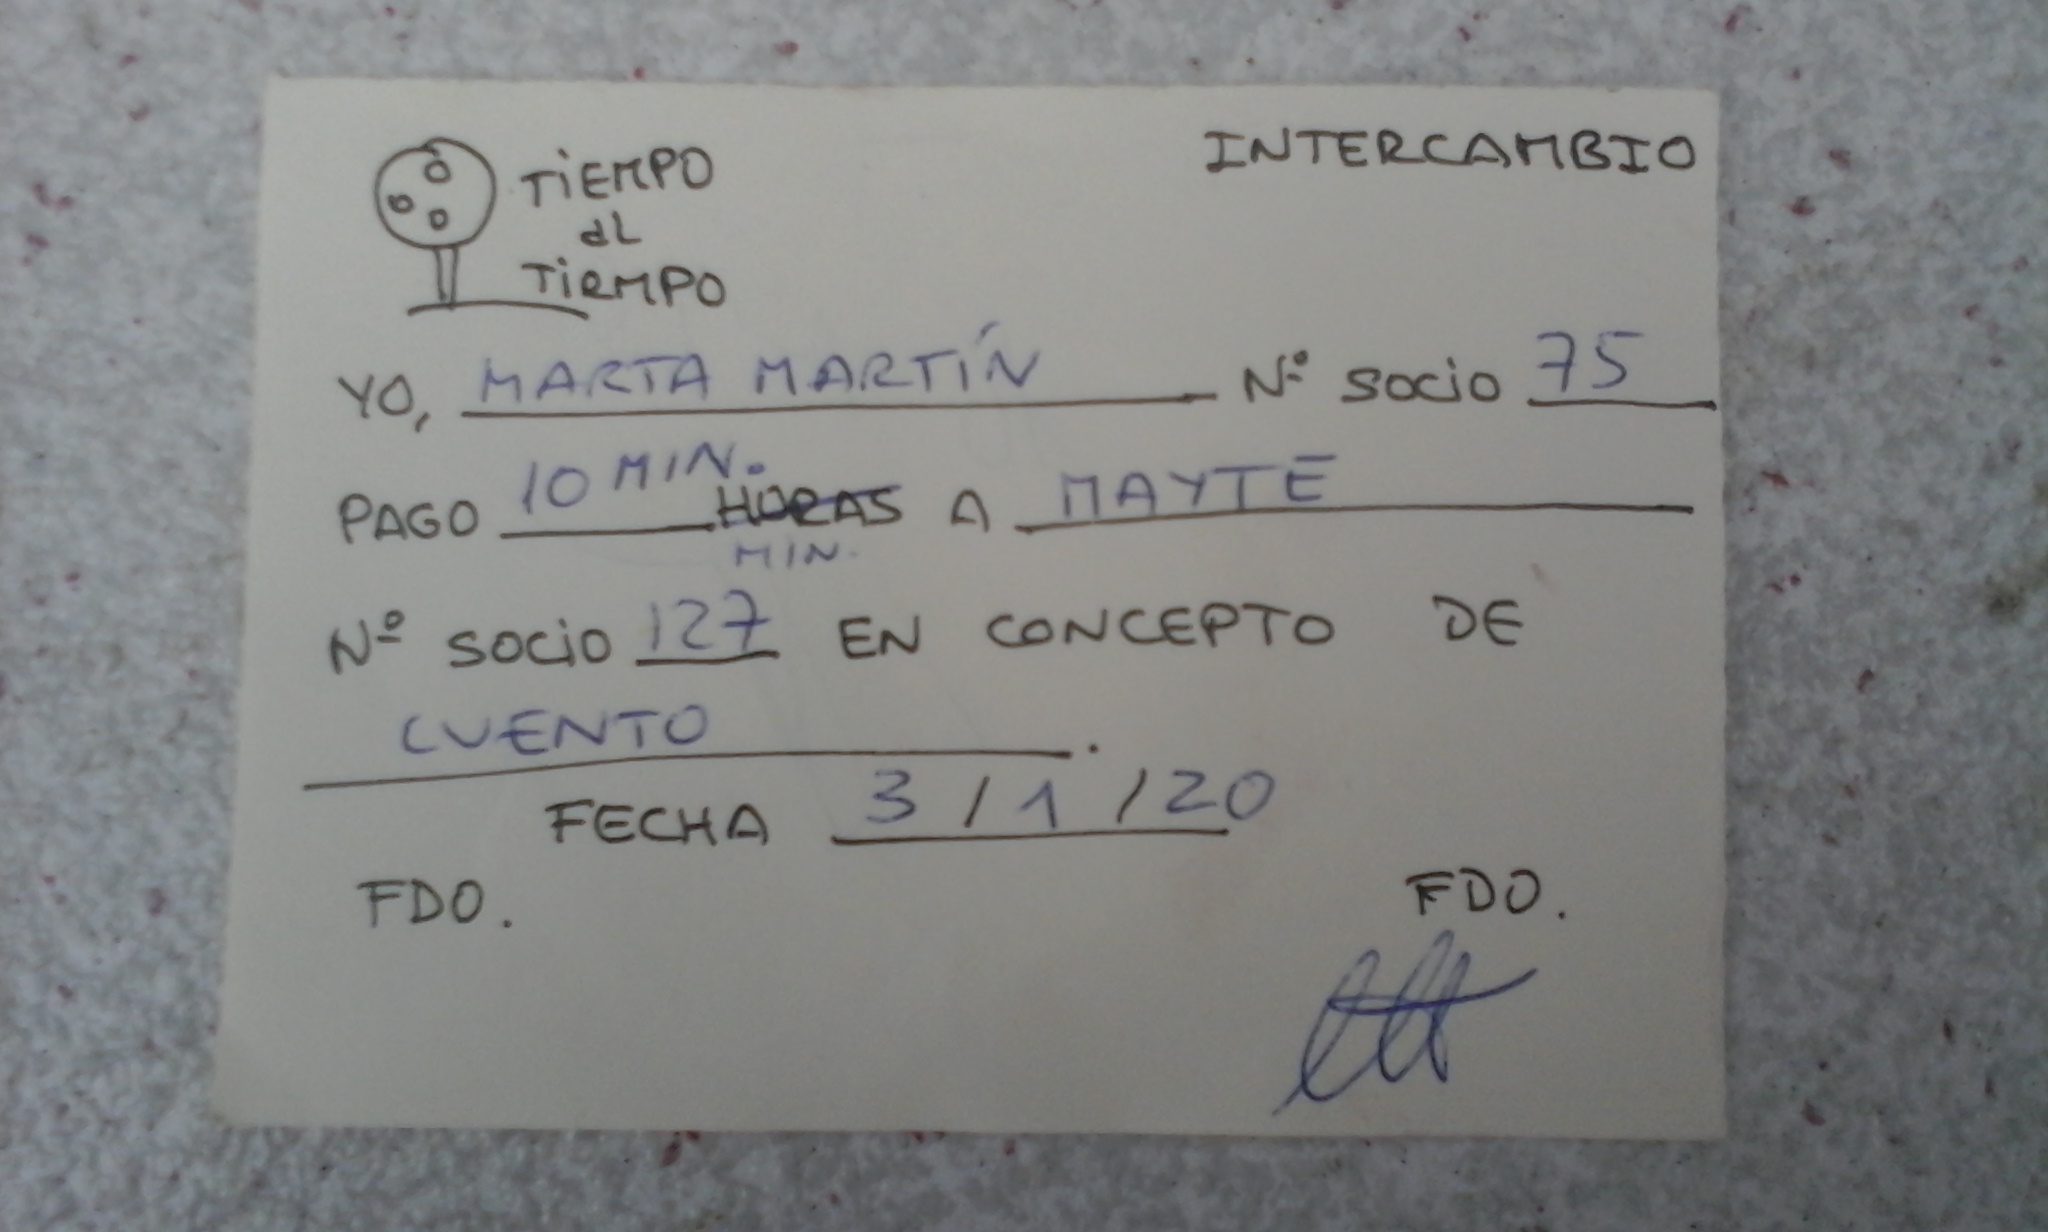 TIEMPO
al
TIEMPO
INTERCAMBIO
YO, MARTA MARTÍN Nº SOCIO 75
PAGO 10 MIN. HORAS A MAYTE
MIN.
Nº SOCIO 127 EN CONCEPTO DE
CUENTO.
FECHA 3/1/20
FDO. FDO.